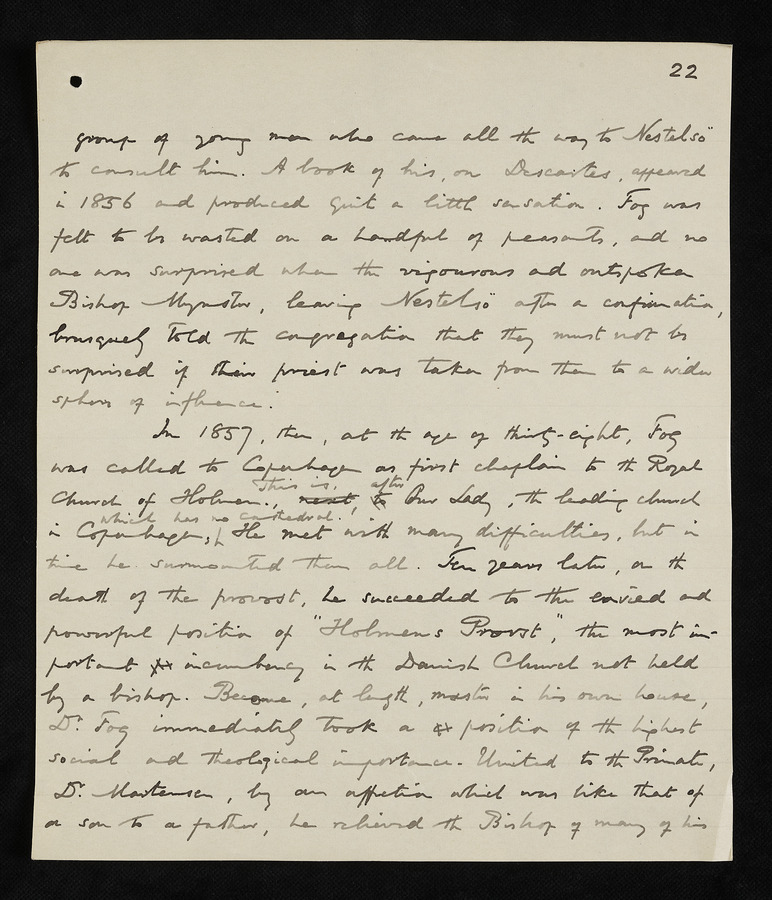 22
group of young men who came all the way to Nestelsö
to consult him. A book of his, on Descartes, appeared
in 1856 and produced quite a little sensation. Fog was
felt to be wasted on a handful of peasants, and no
one was surprised when the vigourous and outspoken
Bishop Mynster, leaving Nestelsö after a confirmation,
brusquely told the congregation that they must not be
surprised if their priest was taken from them to a wider
sphere of influence.
In 1857, then, at the age of thirty-eight, Fog
was called to Copenhagen as first chaplain to the Royal
This is, after
Church of Holmen, next, to Our Lady, the leading church
which has no cathedral.
in Copenhagen, He met with many difficulties, but in
time he surmounted them all. Ten years later, on the
death of the provost, he succeeded to the envied and
powerful position of "Holmens Provst", the most im-
portant incumbency in the Danish Church not held
by a bishop. Become, at length, master in his own house,
Dr. Fog immediately took a position of the highest
social and theological importance. United to the Primate,
Dr. Martensen, by an affection which was like that of
a son to a father, he relieved the Bishop of many of his